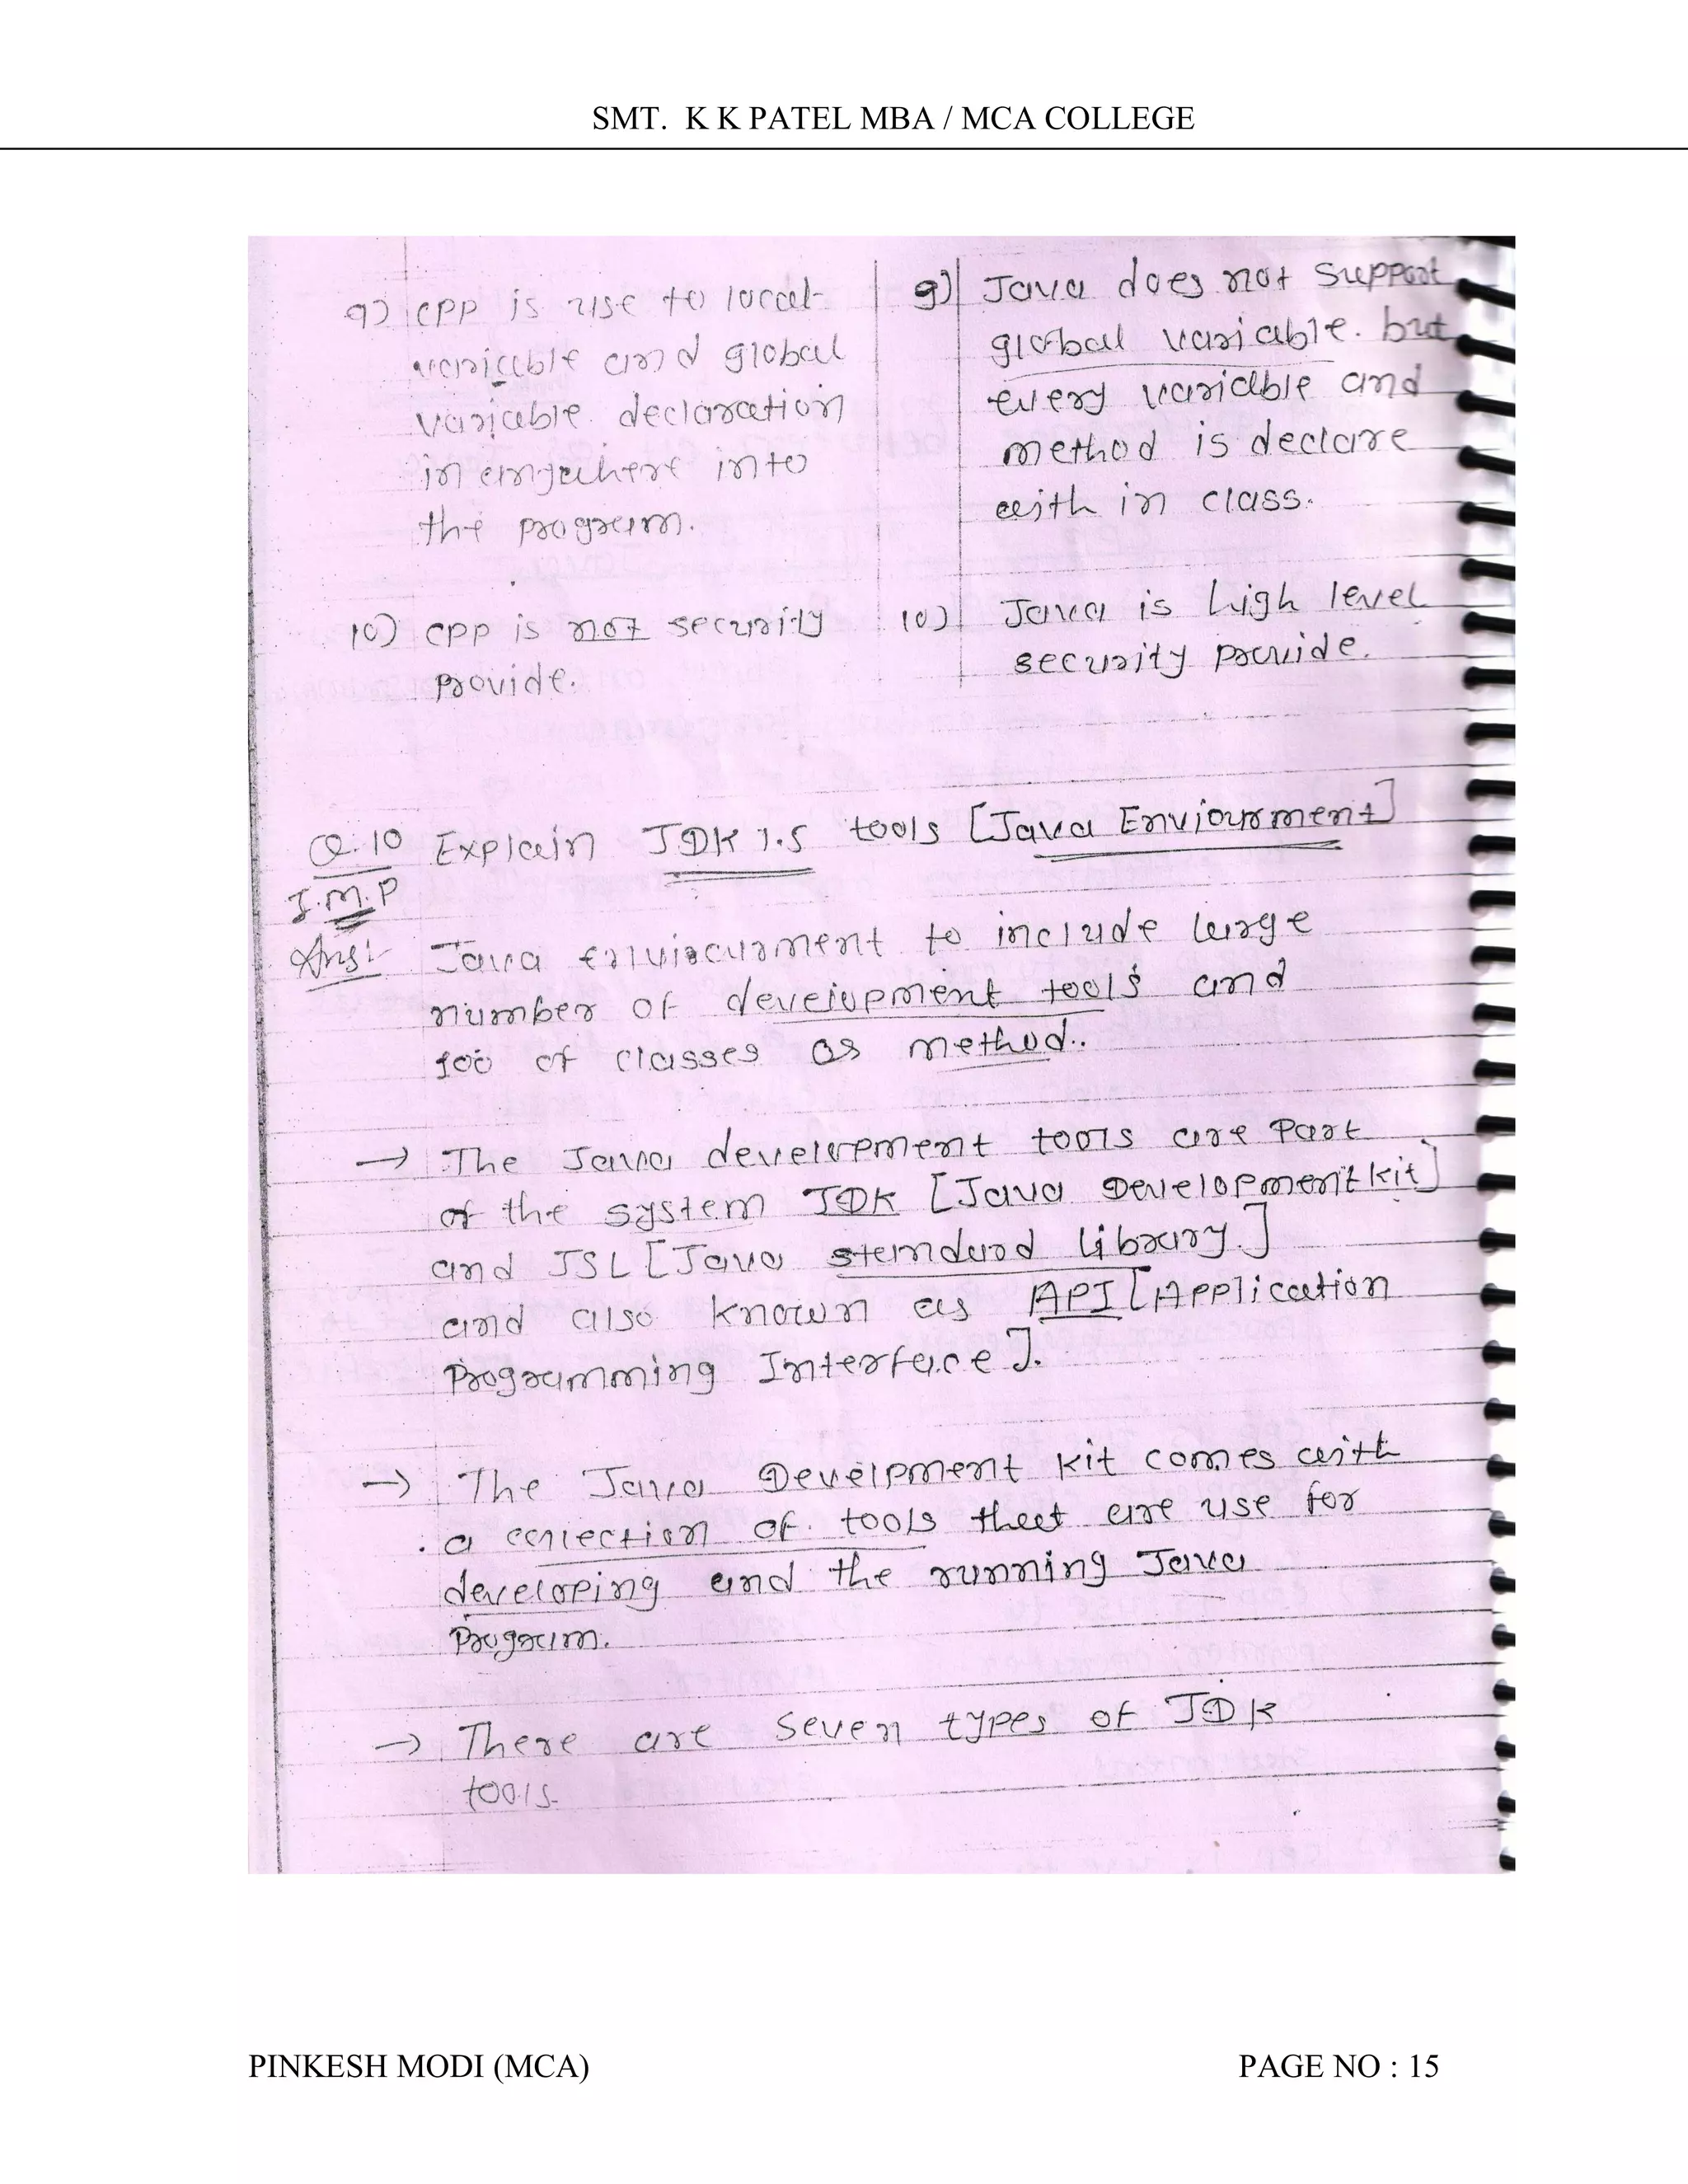 SMT. K K PATEL MBA / MCA COLLEGE
9) CPP is use to local
variable and global
variable declaration
in anywhere into
the program.
9) Java does not Support
global variable. but
every variable and
method is declare
with in class.
10) CPP is not security
provide.
10) Java is high level
security provide.
Q.10 Explain JDK 1.5 tools [Java Enviourment]
I.M.P
Ans:- Java enviourment to include large
number of development tools and
100 of classes as method.
→ The Java development tools are Part
of the system JDK [Java Development kit]
and JSL [Java standard library.]
and also known as API [Application
Programming Interface].
→ The Java Develpment kit comes with
a collection of tools that are use for
developing and the running Java
Program.
→ There are Seven types of JDK
tools.
PINKESH MODI (MCA) PAGE NO : 15